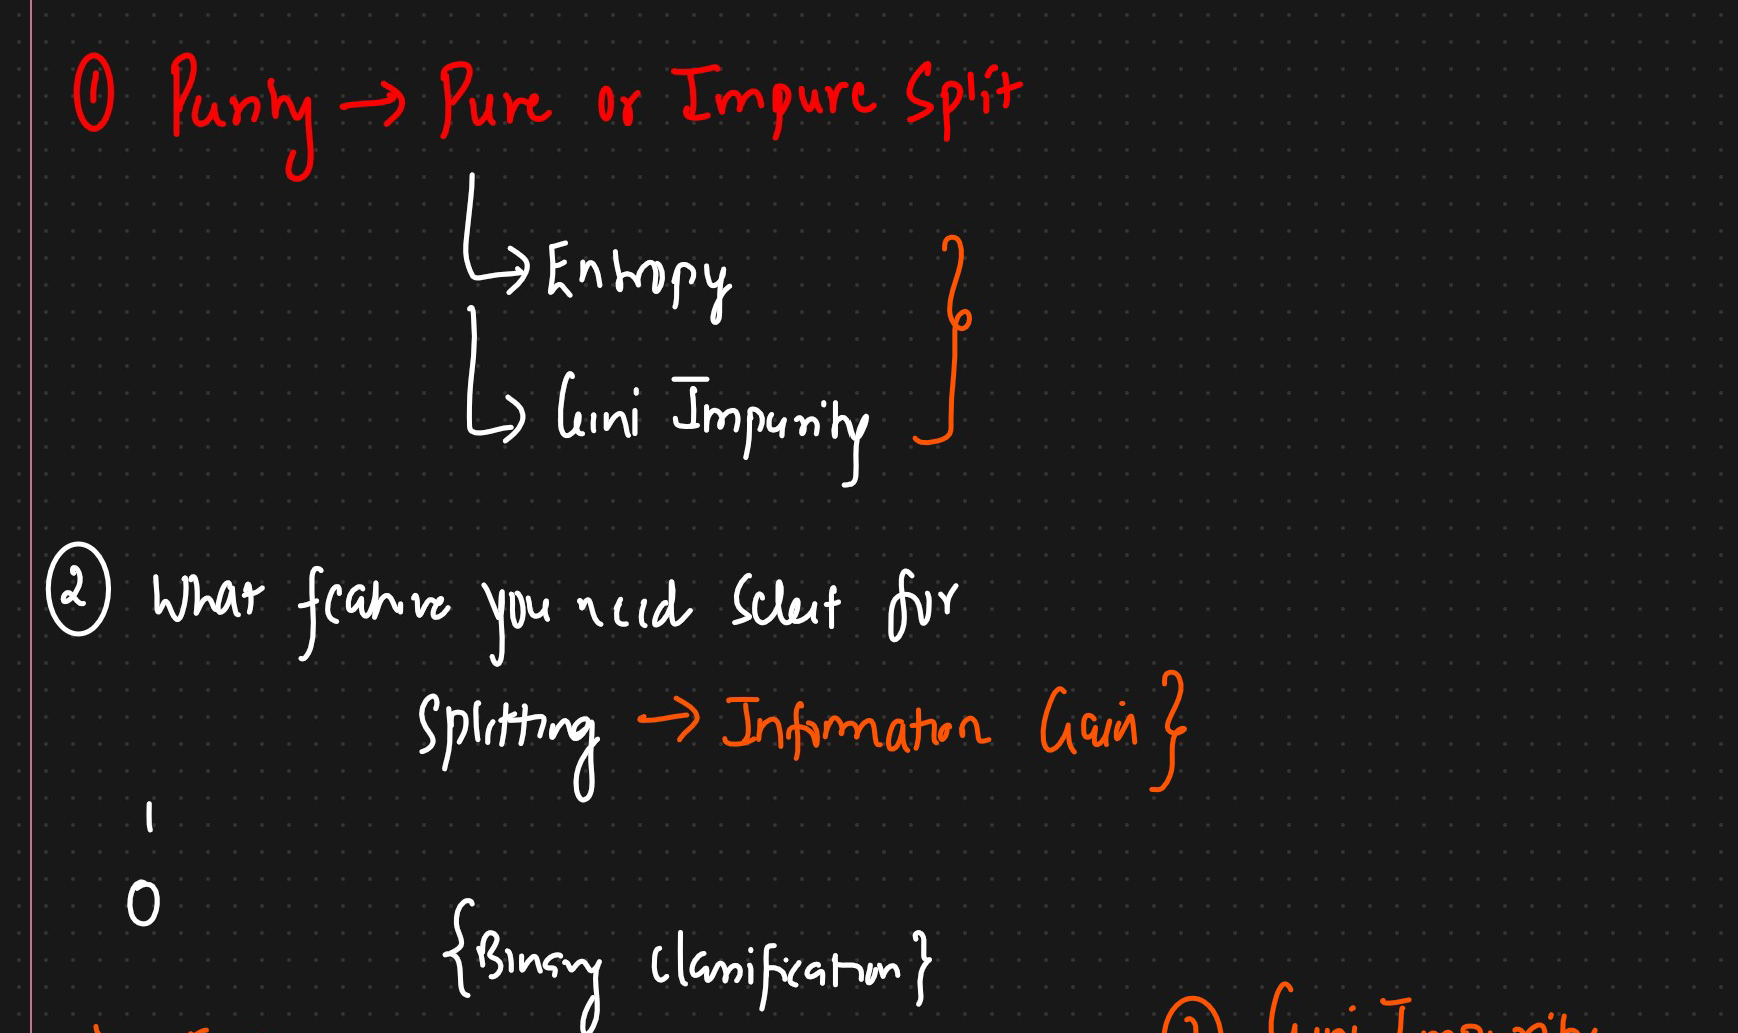 ① Purity → Pure or Impure Split
↳ Entropy
↳ Gini Impurity }
② What feature you need select for
Splitting → Information Gain }
1
0
{Binary Classification}
② Gini Impurity